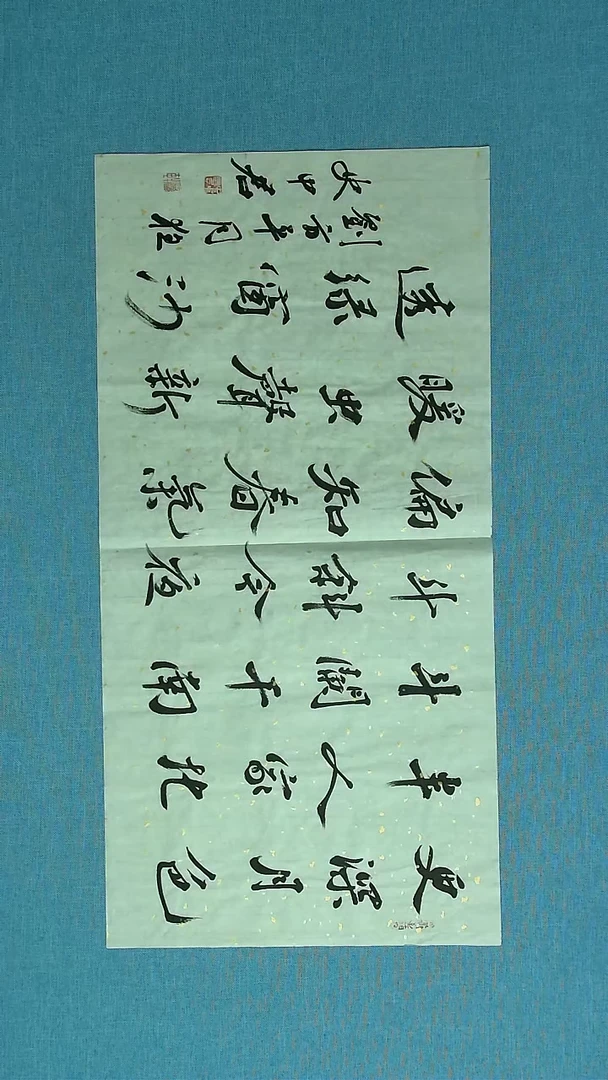 更深月色
半人家北
斗闌干南
斗斜今夜
偏知春氣
暖虫聲新
透綠窗沙
劉方平月
中君